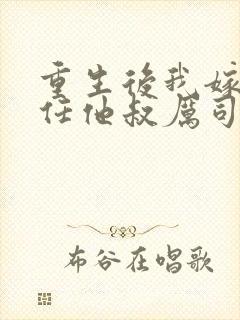 重生後我嫁
任他叔厲司
布谷在唱歌